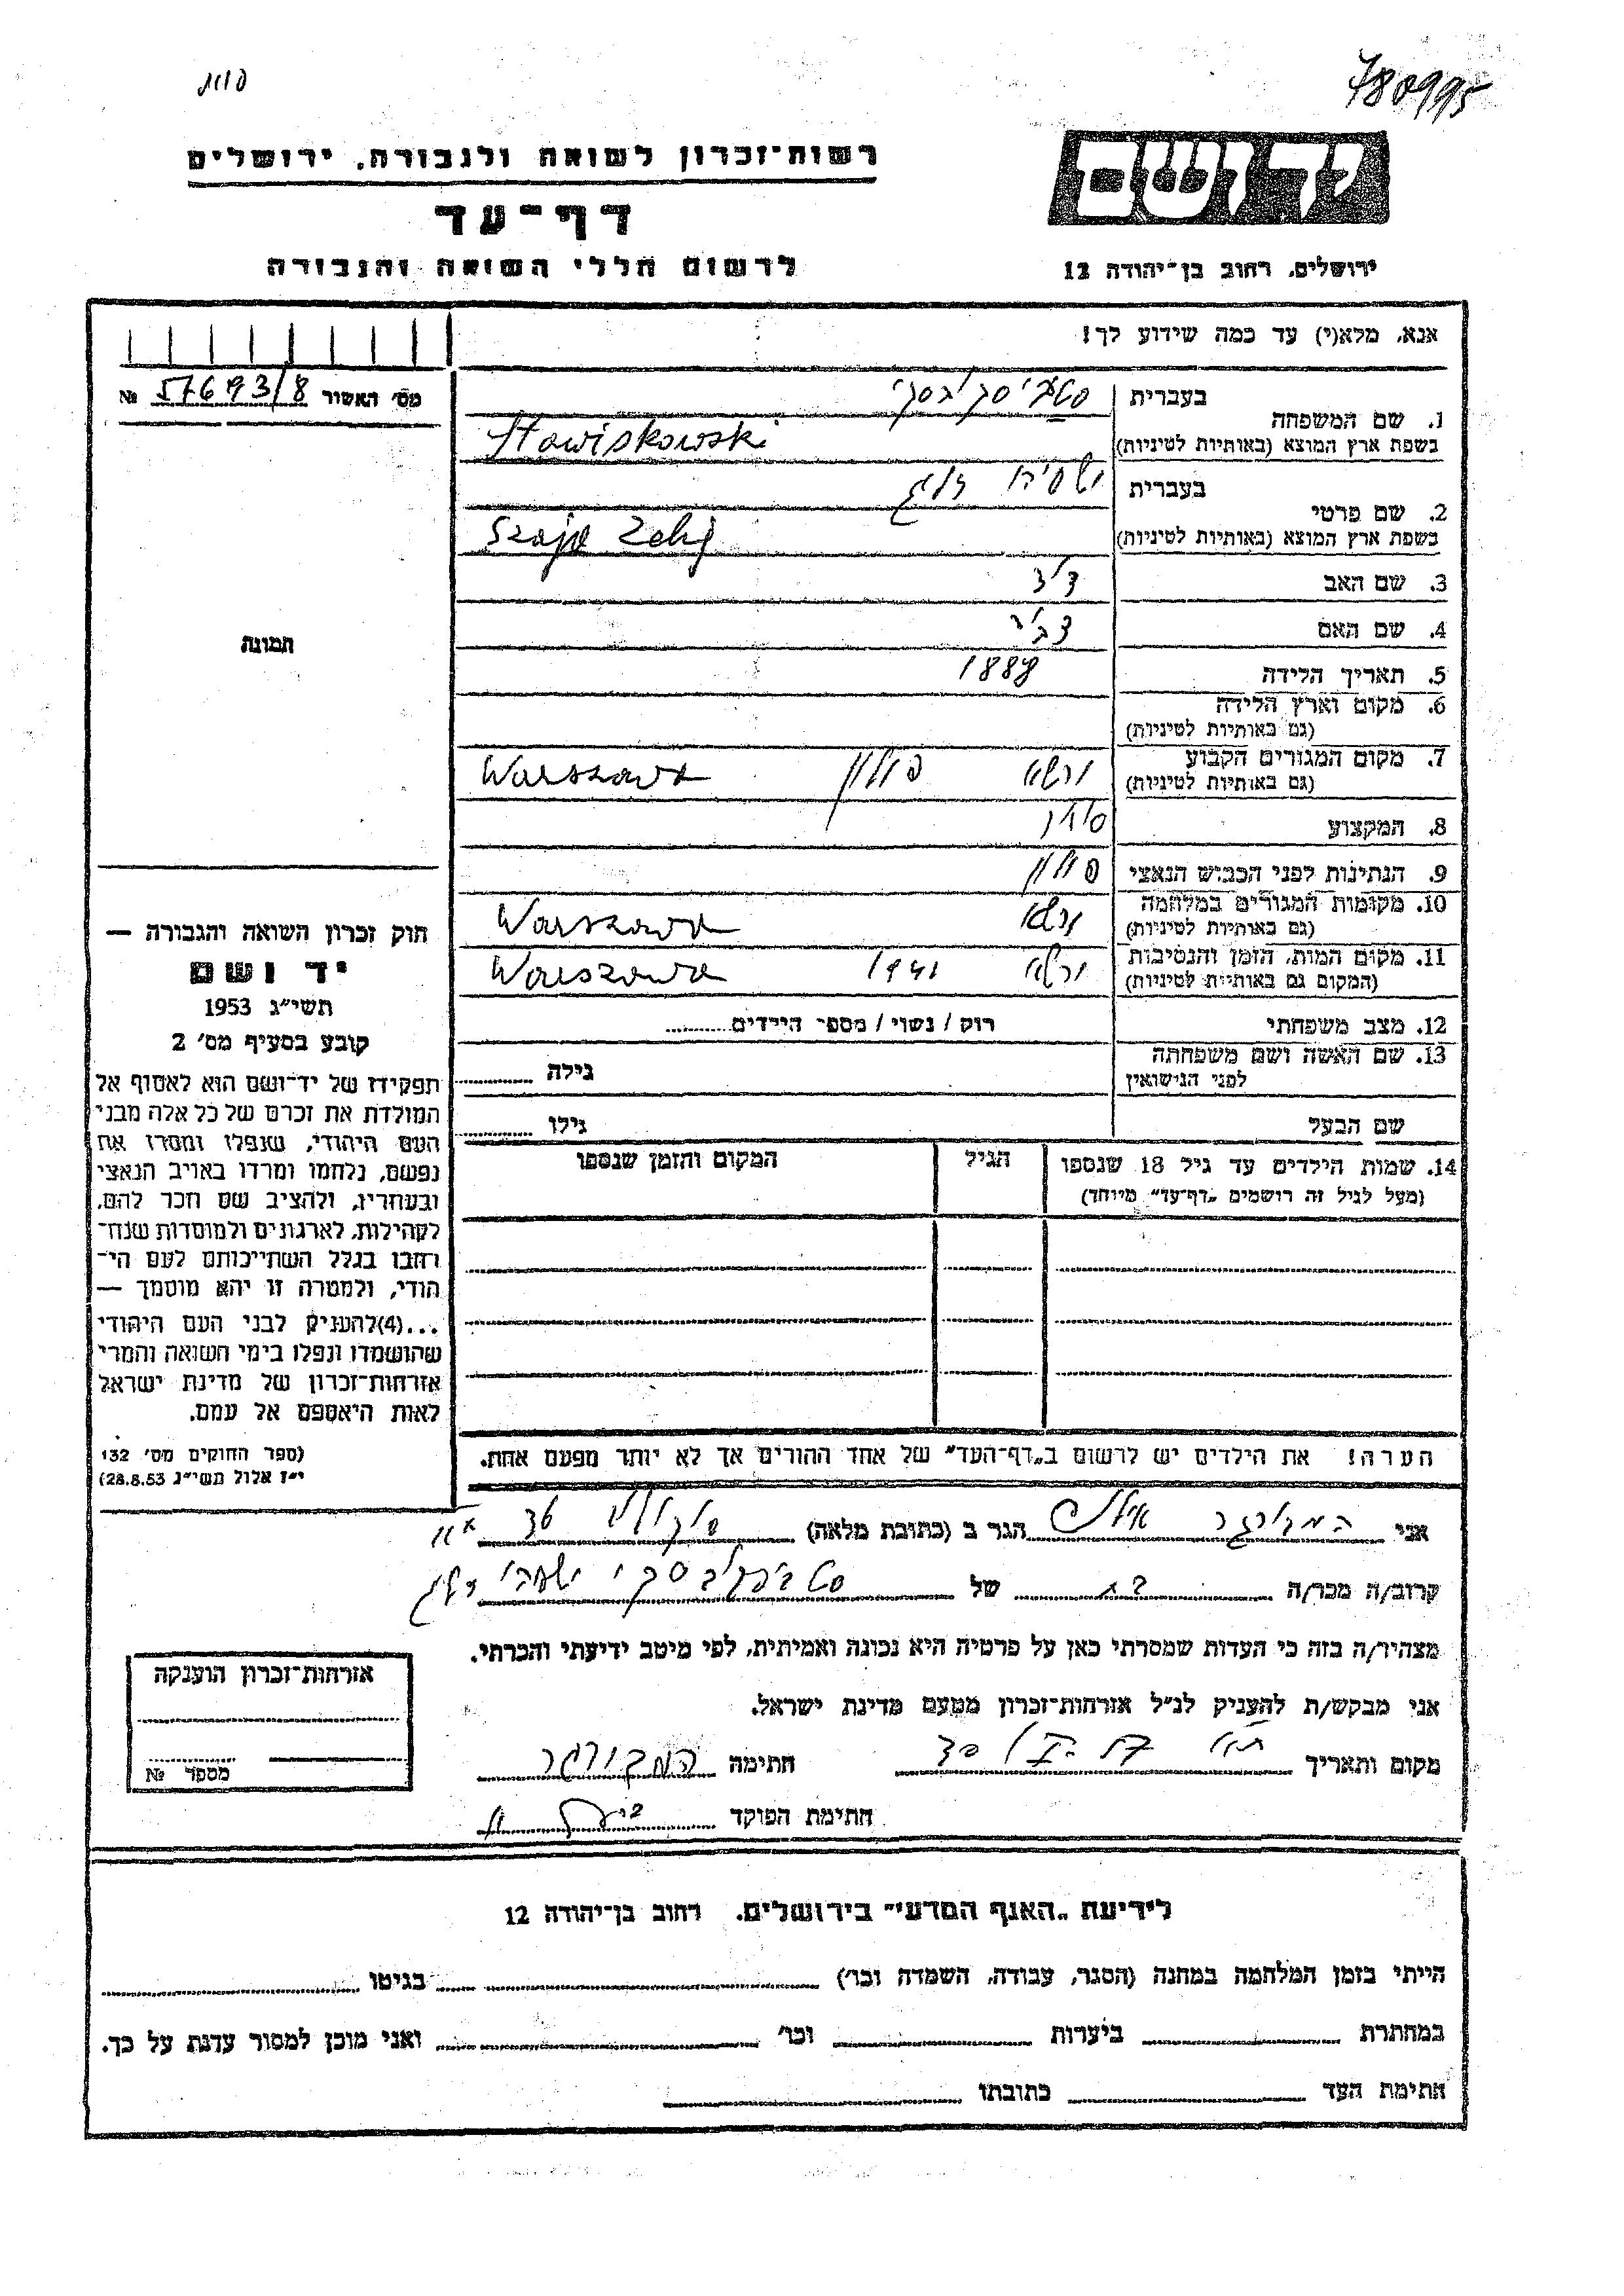 780995
רשות־זכרון לשואה ולגבורה, ירושלים
יד ושם
דף־עד
לרשום חללי השואה והגבורה
ירושלים, רחוב בן־יהודה 12
אנא, מלא(י) עד כמה שידוע לך!
מס׳ האשור 57693/8 №
תמונה
1. שם המשפחה
בעברית
בשפת ארץ המוצא (באותיות לטיניות) Stawiskowski
2. שם פרטי
בעברית זליג
בשפת ארץ המוצא (באותיות לטיניות) Szaja Zelig
3. שם האב
4. שם האם
5. תאריך הלידה 1888
6. מקום וארץ הלידה
(גם באותיות לטיניות)
7. מקום המגורים הקבוע ורשה פולין Warszawa
(גם באותיות לטיניות)
8. המקצוע סוחר
9. הנתינות לפני הכבוש הנאצי פולין
10. מקומות המגורים במלחמה ורשה Warszawa
(גם באותיות לטיניות)
11. מקום המות, הזמן והנסיבות ורשה 1941 Warszawa
(המקום גם באותיות לטיניות)
12. מצב משפחתי רוק / נשוי / מספר הילדים
13. שם האשה ושם משפחתה
לפני הנישואין גילה
שם הבעל גילו
14. שמות הילדים עד גיל 18 שנספו הגיל המקום והזמן שנספו
(מעל לגיל זה רושמים „דף־עד” מיוחד)
הערה! את הילדים יש לרשום ב„דף־העד” של אחד ההורים אך לא יותר מפעם אחת.
חוק זכרון השואה והגבורה —
יד ושם
תשי״ג 1953
קובע בסעיף מס׳ 2
תפקידו של יד־ושם הוא לאסוף אל
המולדת את זכרם של כל אלה מבני
העם היהודי, שנפלו ומסרו את
נפשם, נלחמו ומרדו באויב הנאצי
ובעוזריו, ולהציב שם וזכר להם,
לקהילות, לארגונים ולמוסדות שנח־
רחבו בגלל השתייכותם לעם הי־
הודי, ולמטרה זו יהא מוסמך —
...(4)להעניק לבני העם היהודי
שהושמדו ונפלו בימי השואה והמרי
אזרחות־זכרון של מדינת ישראל
לאות היאספם אל עמם.
(ספר החוקים מס׳ 132
י״ז אלול תשי״ג 28.8.53)
אני המבורגר הגר ב (כתובת מלאה)
קרוב/ה מכר/ה בת של
מצהיר/ה בזה כי העדות שמסרתי כאן על פרטיה היא נכונה ואמיתית, לפי מיטב ידיעתי והכרתי.
אני מבקש/ת להעניק לנ״ל אזרחות־זכרון מטעם מדינת ישראל.
מקום ותאריך חתימה המבורגר
חתימת הפוקד
אזרחות־זכרון הוענקה
מספר №
לידיעת „האגף המדעי” בירושלים, רחוב בן־יהודה 12
הייתי בזמן המלחמה במחנה (הסגר, עבודה, השמדה וכו׳) בגיטו
במחתרת ביערות וכו׳ ואני מוכן למסור עדות על כך.
חתימת העד כתובתו